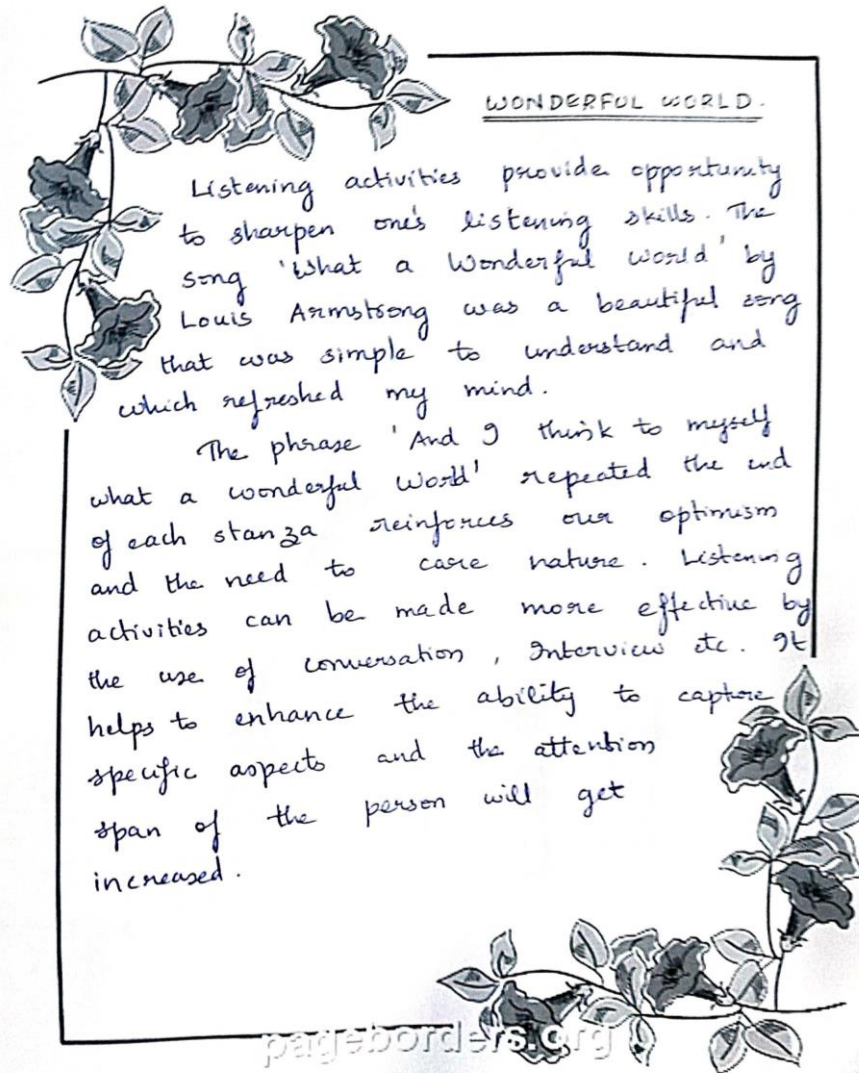 WONDERFUL WORLD.
Listening activities provide opportunity
to sharpen one's listening skills. The
song 'What a Wonderful world' by
Louis Armstrong was a beautiful song
that was simple to understand and
which refreshed my mind.
The phrase 'And I think to myself
what a wonderful world' repeated the end
of each stanza reinforces our optimism
and the need to care nature. Listening
activities can be made more effective by
the use of conversation, Interview etc. It
helps to enhance the ability to capture
specific aspects and the attention
span of the person will get
increased.
pageborders.org